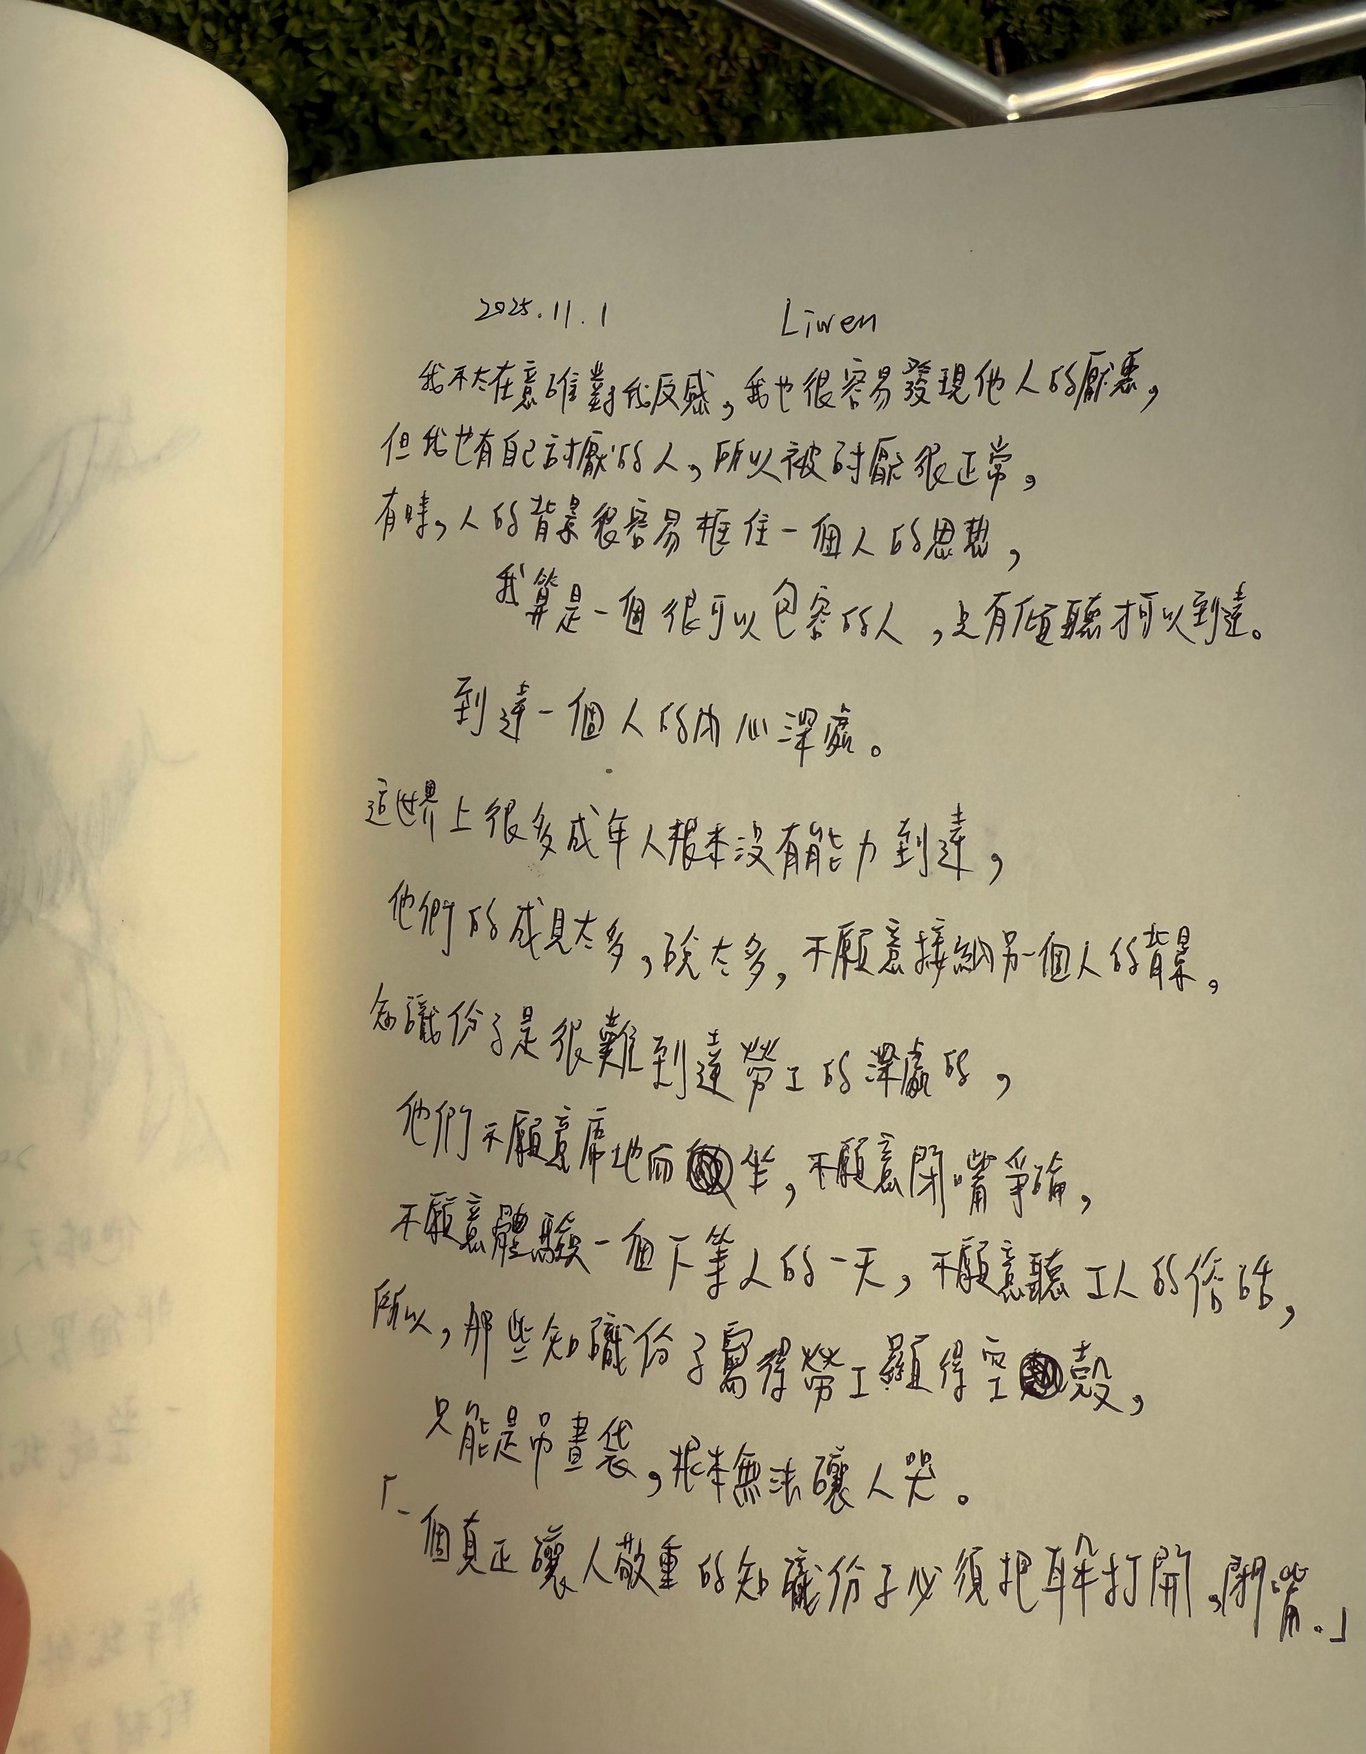 2025.11.1 Liwen
我不太在意誰對我反感，我也很容易發現他人的厭惡，
但我也有自己討厭的人，所以被討厭很正常，
有時，人的背景很容易框住一個人的思想，
我算是一個很可以包容的人，只有傾聽才可以到達。
到達一個人的內心深處。
這世界上很多成年人根本沒有能力到達，
他們的成見太多，說太多，不願意接納另一個人的背景，
知識份子是很難到達勞工的深處的，
他們不願意席地而坐，不願意閉嘴爭論，
不願意體驗一個下等人的一天，不願意聽工人的俗話，
所以，那些知識份子寫得勞工顯得空殼，
只能是吊書袋，根本無法讓人哭。
「一個真正讓人敬重的知識份子必須把耳朵打開，閉嘴。」